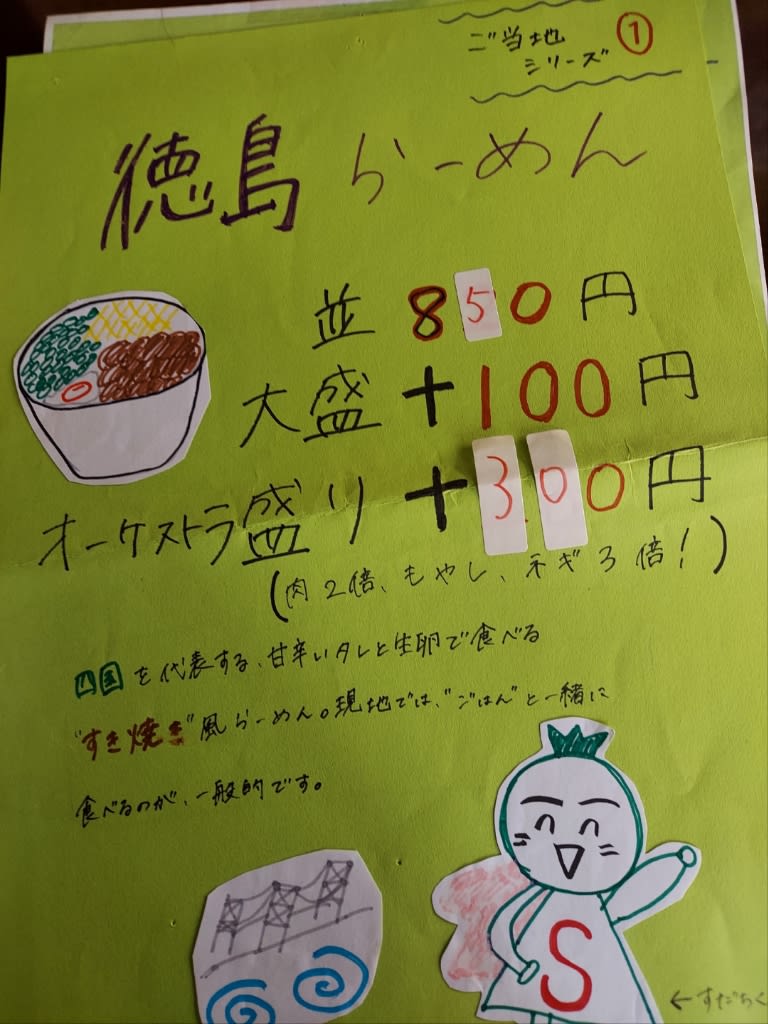 ご当地
シリーズ ①
徳島らーめん
並 850円
大盛 +100円
オーケストラ盛り +300円
(肉2倍、もやし、ネギ3倍!)
四国を代表する、甘辛いタレと生卵で食べる
"すき焼き"風らーめん。現地では、"ごはん"と一緒に
食べるのが、一般的です。
S
←すだちく